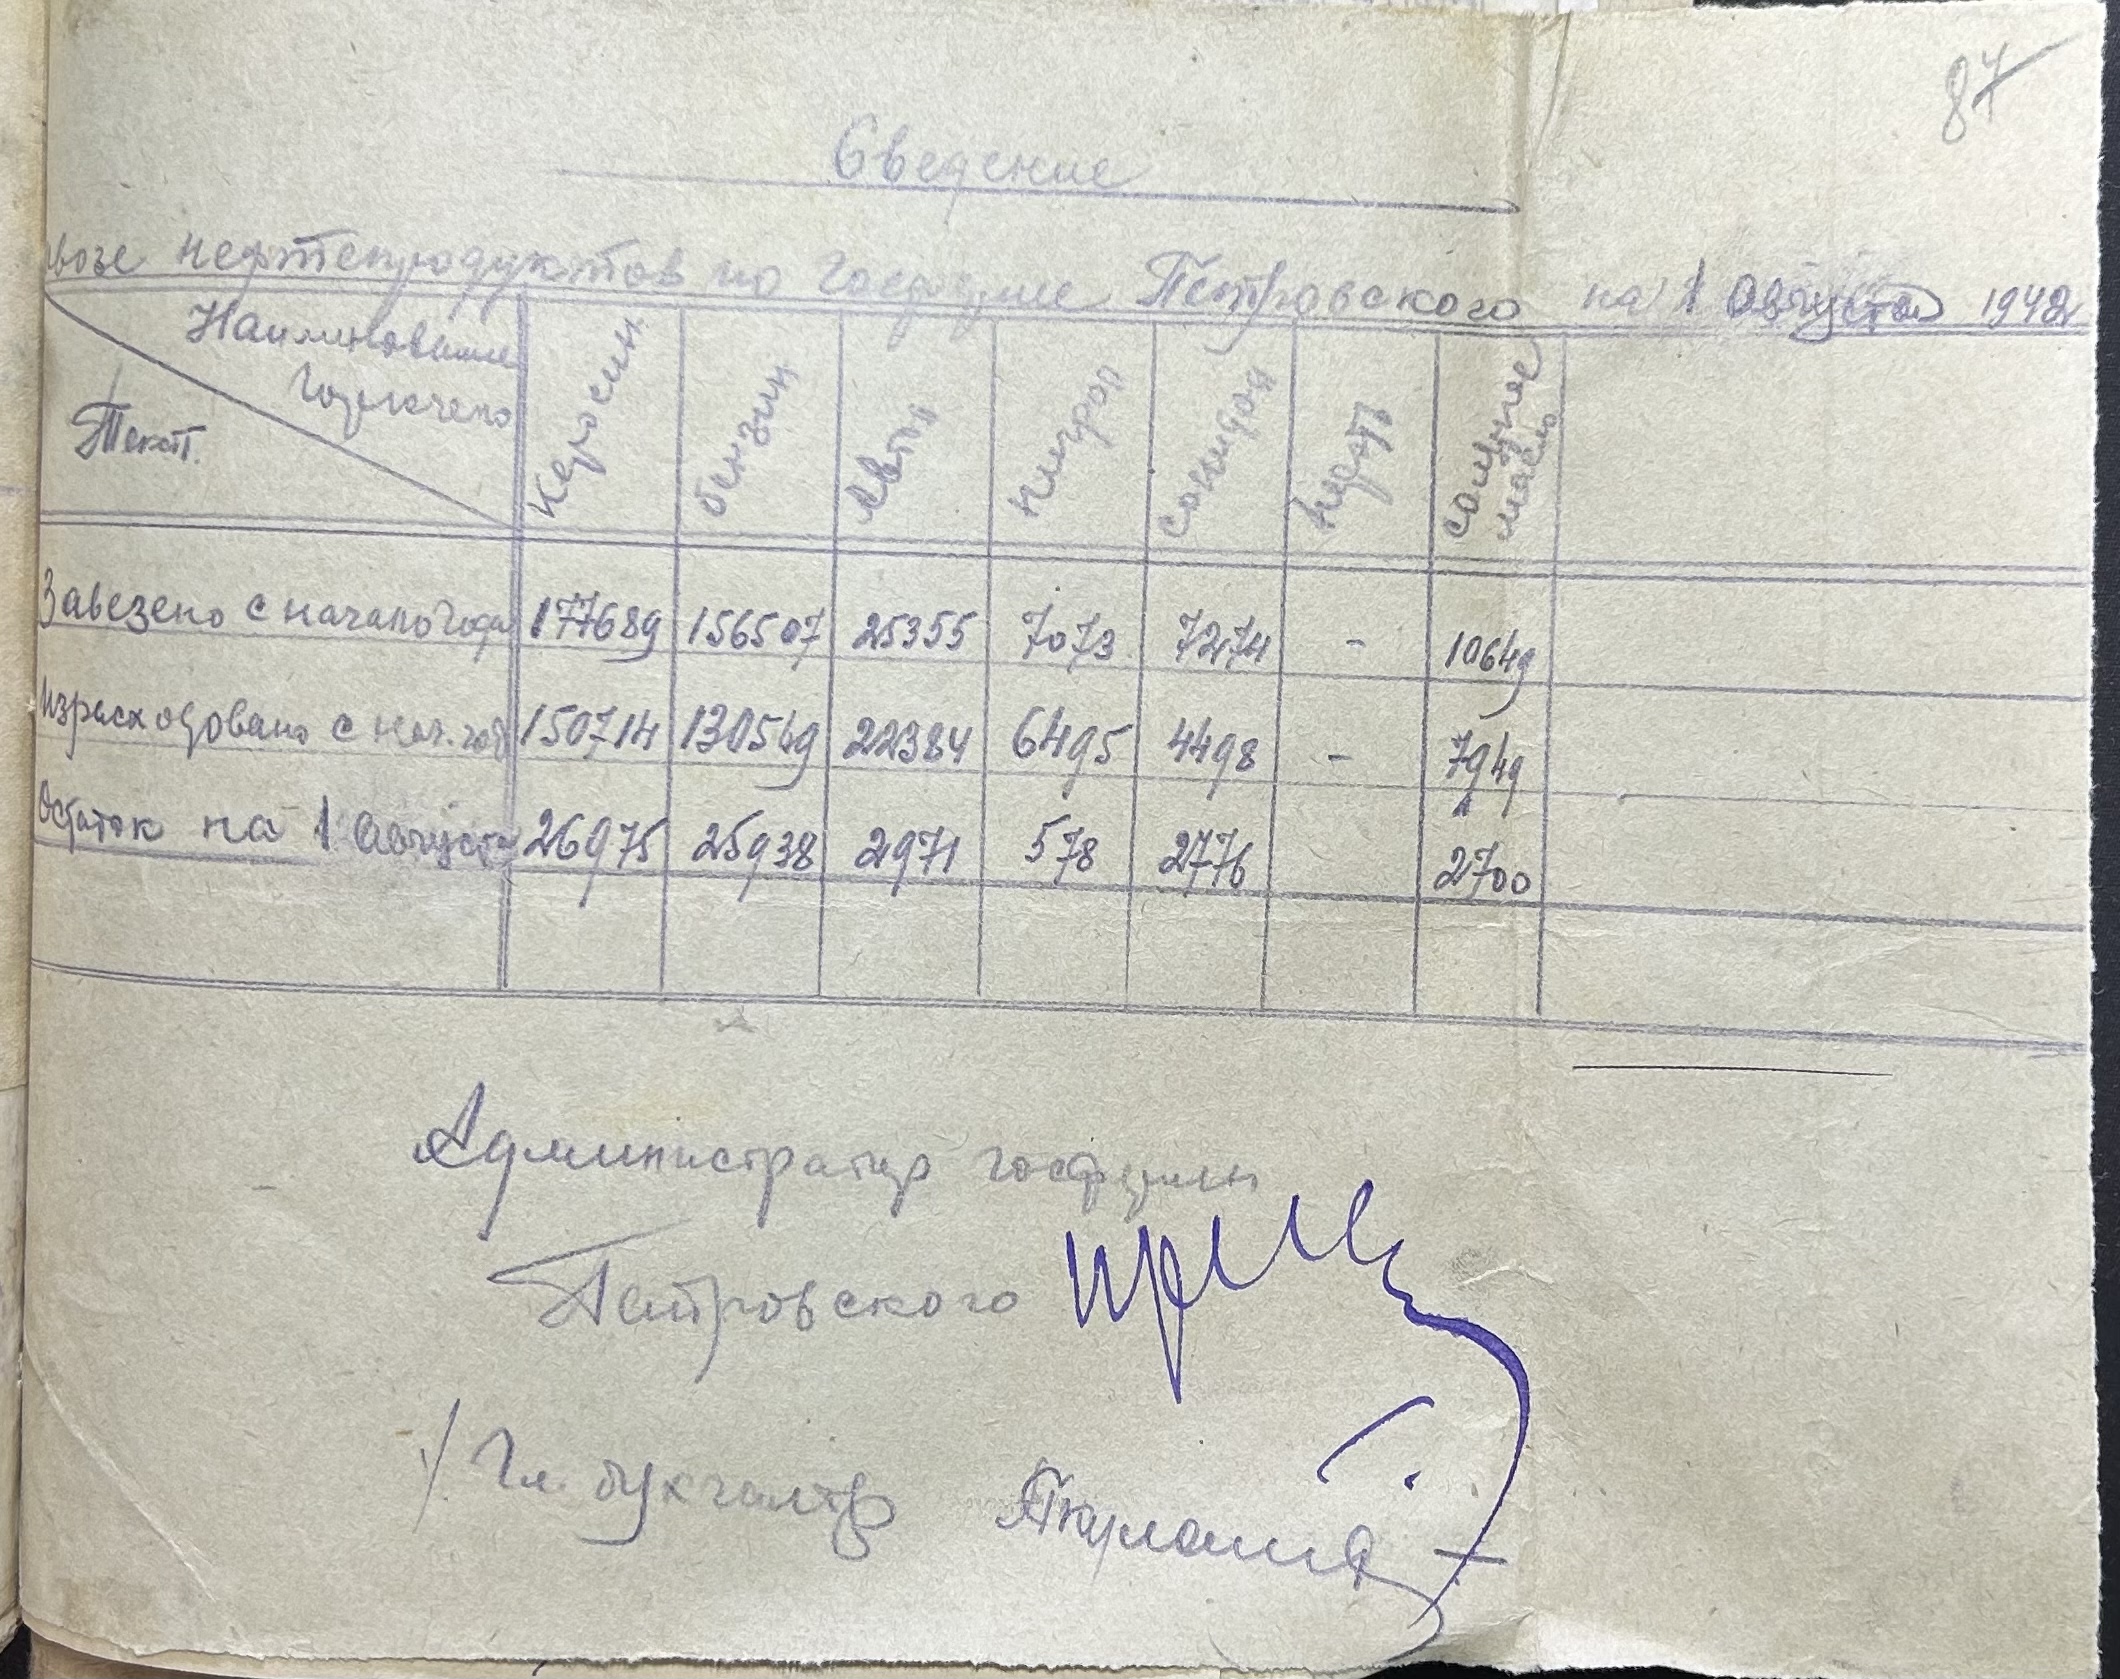 87
Сведение
нефтепродуктов по госферме Петровского на 1 Августа 1942
Наименование горючего
Текст.
Керосин
бензин
Автол
Нигрол
Солидол
Нефть
Солярное масло
Завезено с начало года 177689 156507 25355 7073 7274 - 10649
Израсходовано с нач. год 150714 130569 22384 6495 4498 - 7949
Остаток на 1 Августа 26975 25938 2971 578 2776 2700
Администратор госфермы
Петровского
Гл. бухгалтер